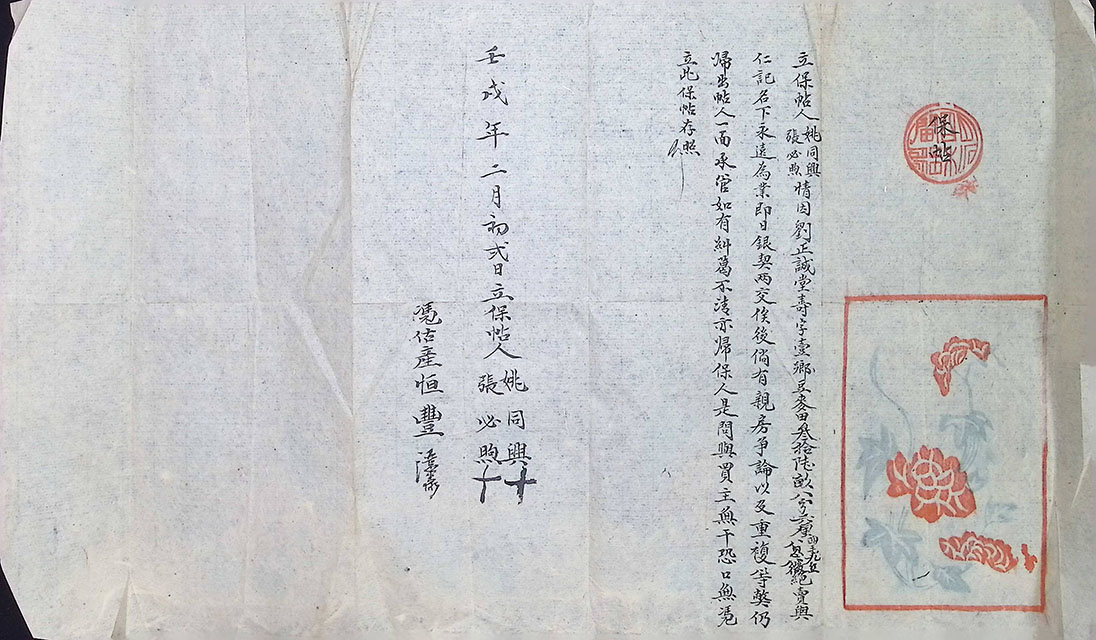 保帖
立保帖人姚同興張必煦情因劉正誠堂壽字壹鄉豆麥田叁拾陸畝八分六厘絕賣與
仁記名下永遠為業即日銀契兩交俟後倘有親房爭論以及重複等獘仍
歸出帖人一面承管如有糾葛不清亦歸保人是問與買主無干恐口無憑
立此保帖存照
壬戌年二月初弍日立保帖人姚同興張必煦十十
憑估產恒豐